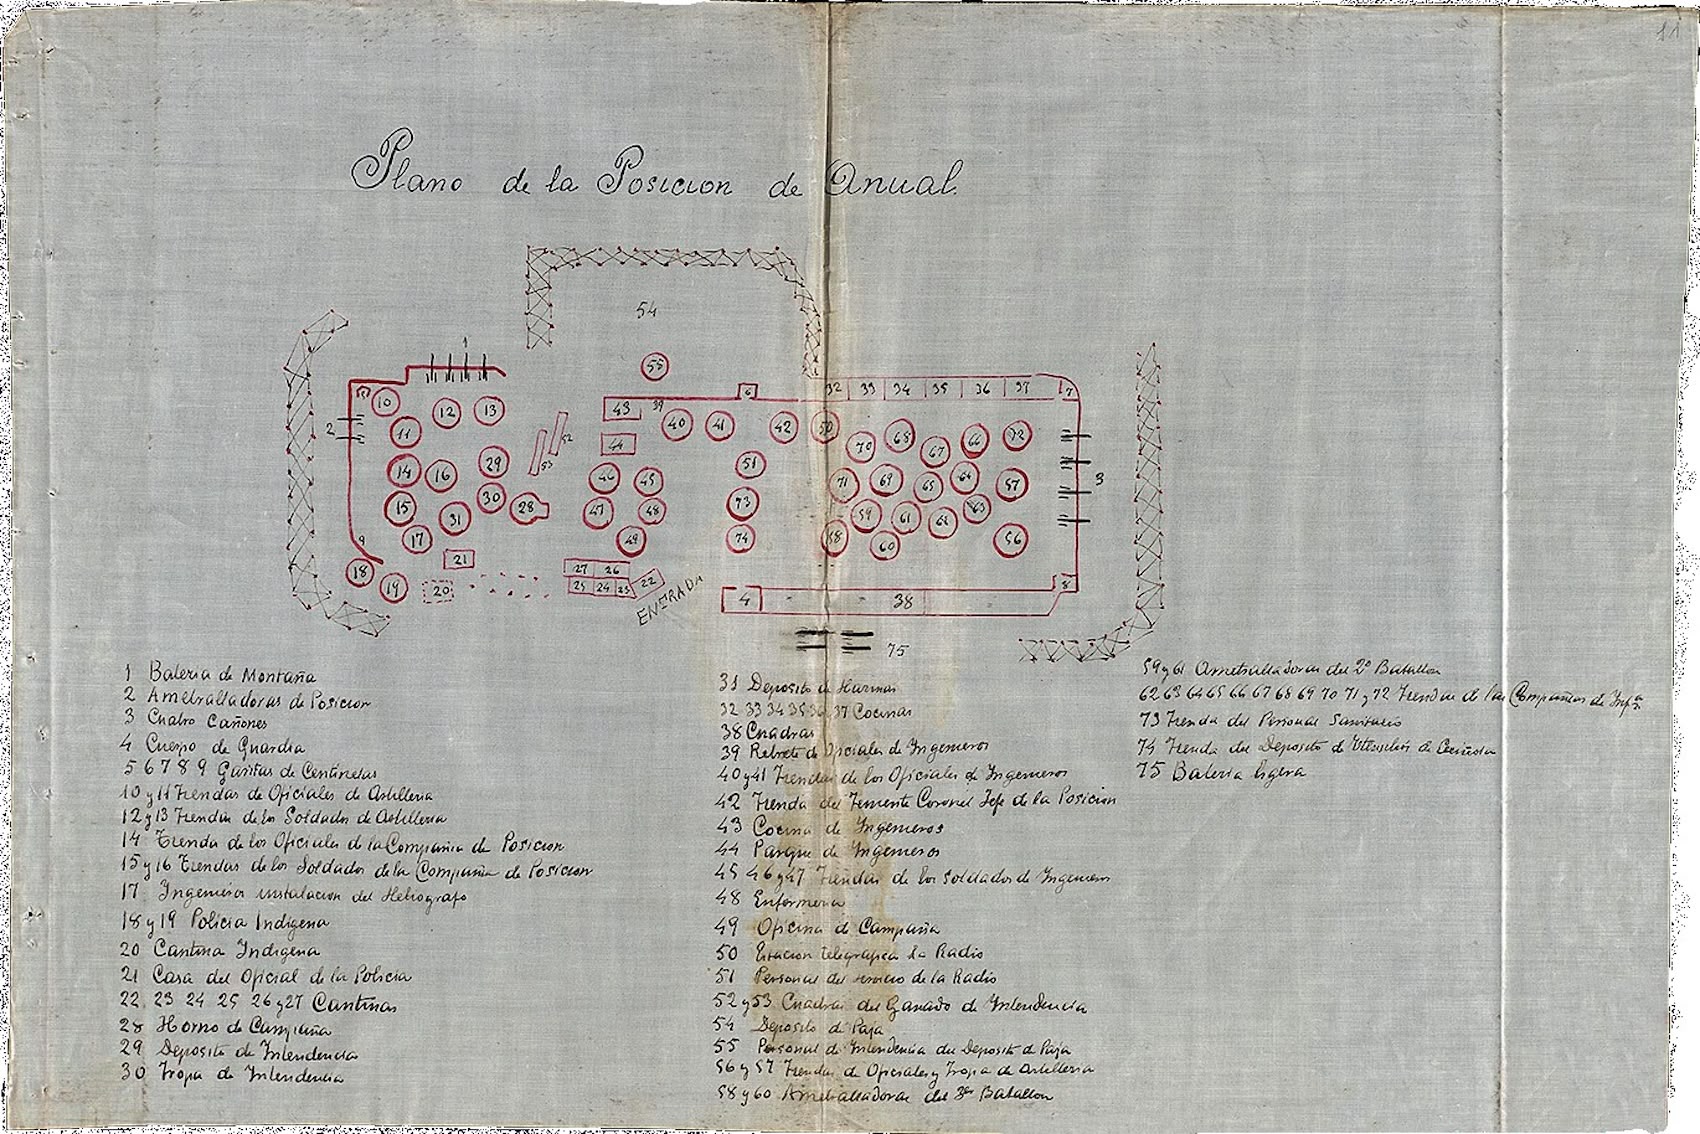 11
Plano de la Posicion de Anual.
54
1
55
5
10
12
13
2
11
43
39
40
41
6
42
50
32 33 34 35 36 37
7
52
53
44
14
16
29
46
45
51
70
68
67
66
72
3
15
31
30
28
47
48
73
71
69
65
64
57
17
9
49
74
59
61
62
63
58
60
56
18
19
21
20
27 26
25 24 23
22
ENTRADA
4
38
8
75
1 Bateria de Montaña
2 Ametralladoras de Posicion
3 Cuatro Cañones
4 Cuerpo de Guardia
5 6 7 8 9 Garitas de Centinelas
10 y 11 Tiendas de Oficiales de Artilleria
12 y 13 Tiendas de los Soldados de Artilleria
14 Tienda de los Oficiales de la Compañia de Posicion
15 y 16 Tiendas de los Soldados de la Compañia de Posicion
17 Ingenieros instalacion del Heliografo
18 y 19 Policia Indigena
20 Cantina Indigena
21 Casa del Oficial de la Policia
22 23 24 25 26 y 27 Cantinas
28 Horno de Campaña
29 Deposito de Intendencia
30 Tropa de Intendencia
31 Deposito de Harinas
32 33 34 35 36 37 Cocinas
38 Cuadras
39 Retrete de Oficiales de Ingenieros
40 y 41 Tiendas de los Oficiales de Ingenieros
42 Tienda del Teniente Coronel Jefe de la Posicion
43 Cocina de Ingenieros
44 Parque de Ingenieros
45 46 y 47 Tiendas de los soldados de Ingenieros
48 Enfermeria
49 Oficina de Campaña
50 Estacion telegrafica la Radio
51 Personal del servicio de la Radio
52 y 53 Cuadras del Ganado de Intendencia
54 Deposito de Paja
55 Personal de Intendencia del Deposito de Paja
56 y 57 Tiendas de Oficiales y Tropa de Artilleria
58 y 60 Ametralladoras del 3er Batallon
59 y 61 Ametralladoras del 2º Batallon
62 63 64 65 66 67 68 69 70 71 y 72 Tiendas de las Compañias de Infª
73 Tienda del Personal Sanitario
74 Tienda del Deposito de Utensilios de
75 Bateria ligera